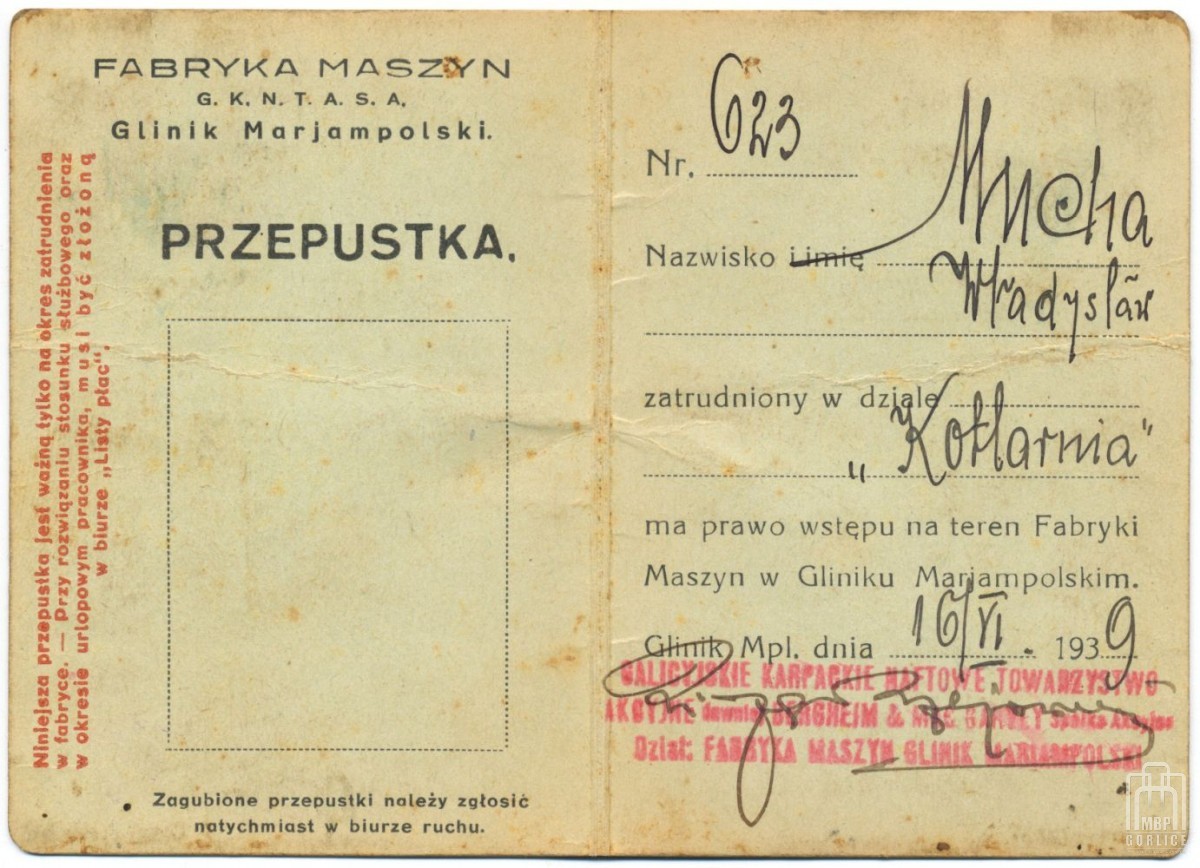 FABRYKA MASZYN
G. K. N. T. A. S. A.
Glinik Marjampolski.
PRZEPUSTKA.
Niniejsza przepustka jest ważną tylko na okres zatrudnienia
w fabryce. — Przy rozwiązaniu stosunku służbowego oraz
w okresie urlopowym pracownika, musi być złożoną
w biurze „Listy płac".
Zagubione przepustki należy zgłosić
natychmiast w biurze ruchu.
Nr. 623
Nazwisko i imię Mucha
Władysław
zatrudniony w dziale
„Kotlarnia"
ma prawo wstępu na teren Fabryki
Maszyn w Gliniku Marjampolskim.
Glinik Mpl. dnia 16/VI. 1939
GALICYJSKIE KARPACKIE NAFTOWE TOWARZYSTWO
AKCYJNE dawniej BERGHEIM & MAC GARVEY Spółka Akcyjna
Dział: FABRYKA MASZYN GLINIK MARIAMPOLSKI
MBP
GORLICE